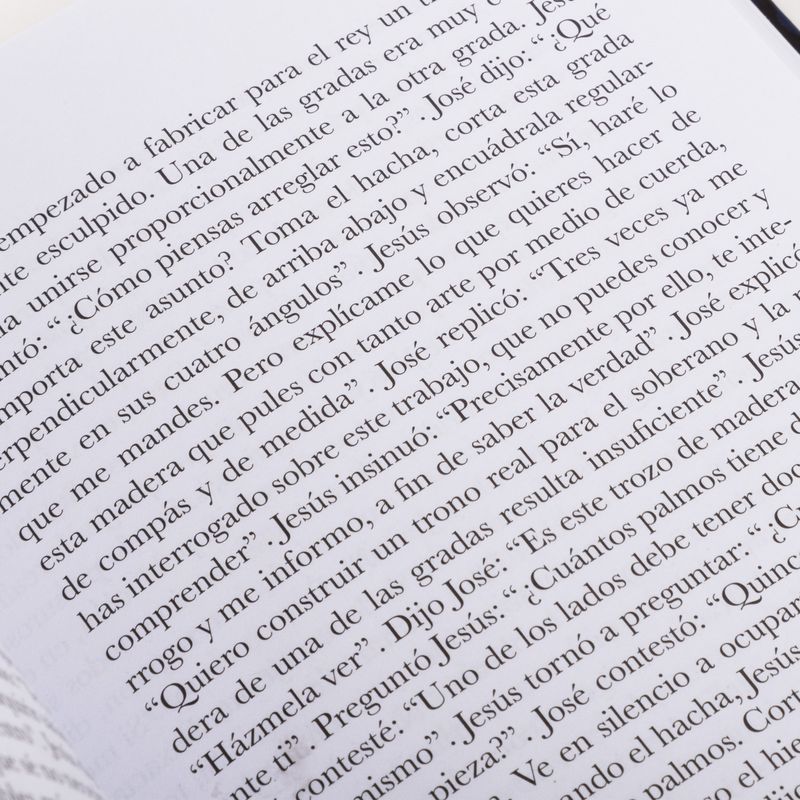 empezado a fabricar para el rey un t
nte esculpido. Una de las gradas era muy c
ía unirse proporcionalmente a la otra grada. Jes
ntó: “¿Cómo piensas arreglar esto?”. José dijo: “¿Qué
mporta este asunto? Toma el hacha, corta esta grada
erpendicularmente, de arriba abajo y encuádrala regular-
mente en sus cuatro ángulos”. Jesús observó: “Sí, haré lo
que me mandes. Pero explícame lo que quieres hacer de
esta madera que pules con tanto arte por medio de cuerda,
de compás y de medida”. José replicó: “Tres veces ya me
has interrogado sobre este trabajo, que no puedes conocer y
comprender”. Jesús insinuó: “Precisamente por ello, te inte-
rrogo y me informo, a fin de saber la verdad”. José explicó
“Quiero construir un trono real para el soberano y la
dera de una de las gradas resulta insuficiente”. Jesús
“Házmela ver”. Dijo José: “Es este trozo de madera
nte ti”. Preguntó Jesús: “¿Cuántos palmos tiene d
contesté: “Uno de los lados debe tener doc
mismo”. Jesús tornó a preguntar: “¿C
pieza?”. José contestó: “Quinc
Ve en silencio a ocupar
ando el hacha, Jesús
palmos. Cort
o el hie